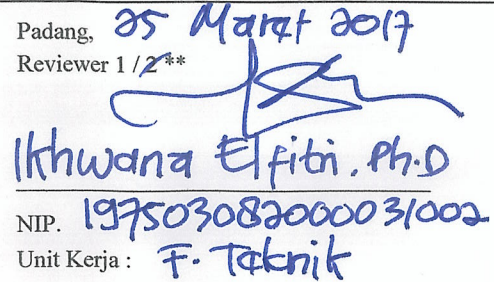 Padang, 25 Maret 2017
Reviewer 1 / 2 **
Ikhwana Elfitri, Ph.D
NIP. 197503082000031002
Unit Kerja : F. Teknik